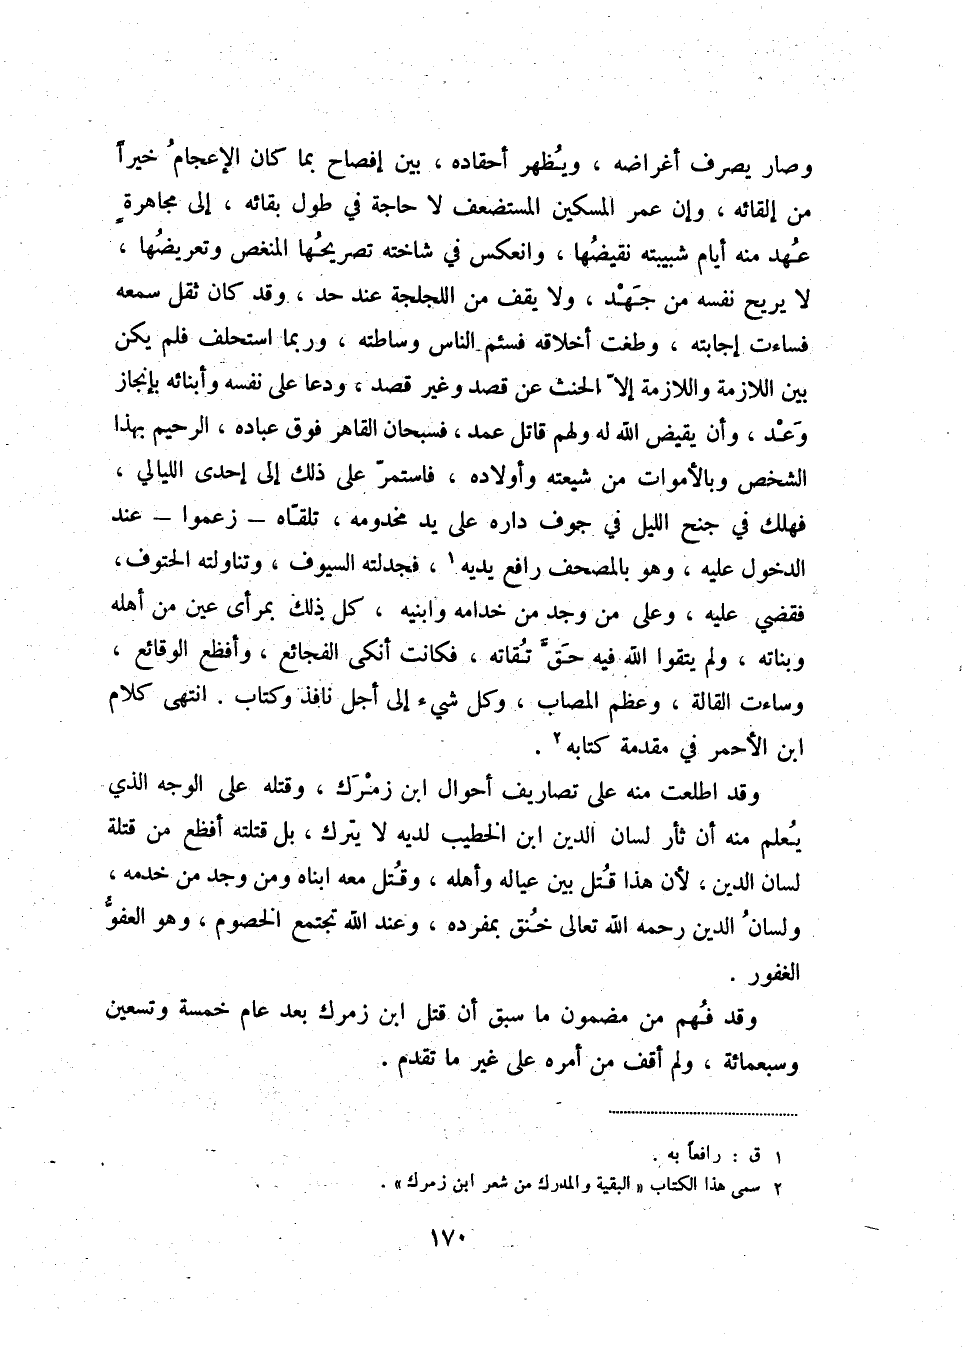 وصار يصرف أغراضه ، ويُظهر أحقاده ، بين إفصاح بما كان الإعجامُ خيراً
من إلقائه ، وإن عمر المسكين المستضعف لا حاجة في طول بقائه ، إلى مجاهرةٍ
عُهد منه أيام شبيبته نقيضُها ، وانعكس في شاخته تصريحُها المنغص وتعريضُها ،
لا يريح نفسه من جَهْد ، ولا يقف من اللجلجة عند حد ، وقد كان ثقل سمعه
فساءت إجابته ، وطغت أخلاقه فسئم الناس وساطته ، وربما استحلف فلم يكن
بين اللازمة واللازمة إلاّ الحنث عن قصد وغير قصد ، ودعا على نفسه وأبنائه بإنجاز
وَعْد ، وأن يقيض الله له ولهم قاتل عمد ، فسبحان القاهر فوق عباده ، الرحيم بهذا
الشخص وبالأموات من شيعته وأولاده ، فاستمرّ على ذلك إلى إحدى الليالي ،
فهلك في جنح الليل في جوف داره على يد مخدومه ، تلقّاه – زعموا – عند
الدخول عليه ، وهو بالمصحف رافع يديه ١ ، فجدلته السيوف ، وتناولته الحتوف ،
فقضي عليه ، وعلى من وجد من خدامه وابنيه ، كل ذلك بمرأى عين من أهله
وبناته ، ولم يتقوا الله فيه حَقَّ تُقاته ، فكانت أنكى الفجائع ، وأفظع الوقائع ،
وساءت القالة ، وعظم المصاب ، وكل شيء إلى أجل نافذ وكتاب . انتهى كلام
ابن الأحمر في مقدمة كتابه ٢ .
وقد اطلعت منه على تصاريف أحوال ابن زمْرَك ، وقتله على الوجه الذي
يُعلم منه أن ثأر لسان الدين ابن الخطيب لديه لا يترك ، بل قتلته أفظع من قتلة
لسان الدين ، لأن هذا قُتل بين عياله وأهله ، وقُتل معه ابناه ومن وجد من خدمه ،
ولسانُ الدين رحمه الله تعالى خُنق بمفرده ، وعند الله تجتمع الخصوم ، وهو العفوُّ
الغفور .
وقد فُهم من مضمون ما سبق أن قتل ابن زمرك بعد عام خمسة وتسعين
وسبعمائة ، ولم أقف من أمره على غير ما تقدم .
١ ق : رافعاً به .
٢ سمى هذا الكتاب « البقية والمدرك من شعر ابن زمرك » .
١٧٠